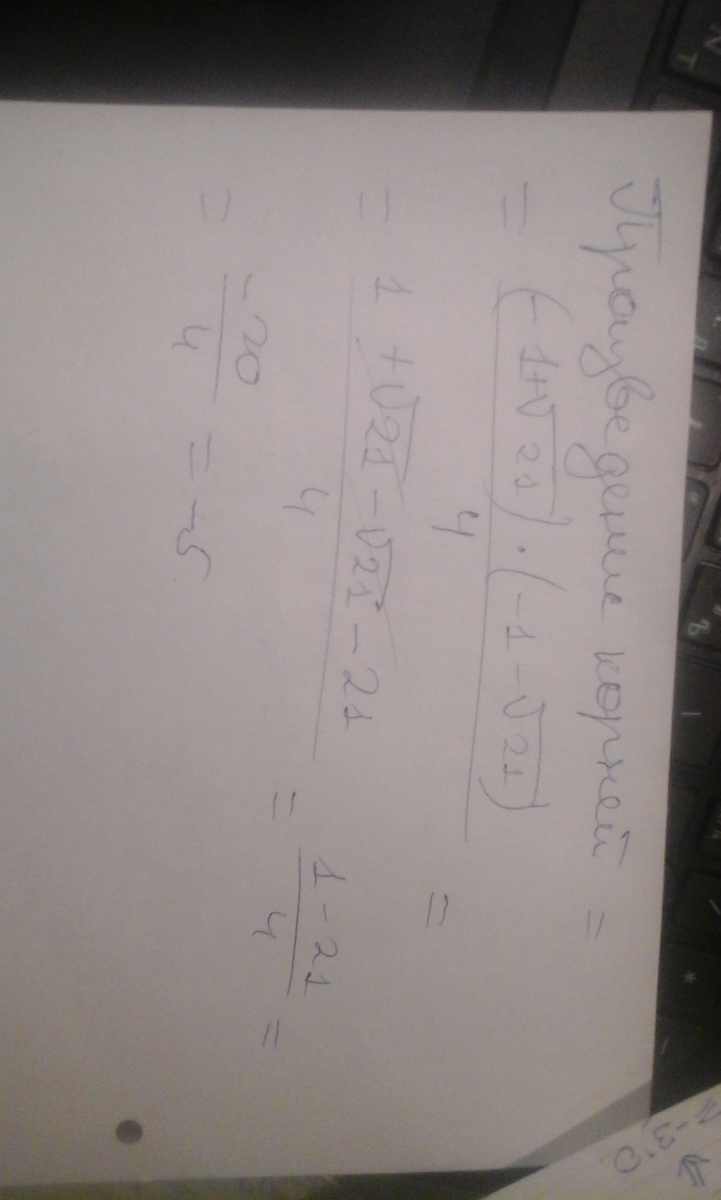 Произведение корней =
= (-1+√21)·(-1-√21) / 4 =
= 1 + √21 - √21 - 21 / 4 = 1-21 / 4 =
= -20 / 4 = -5